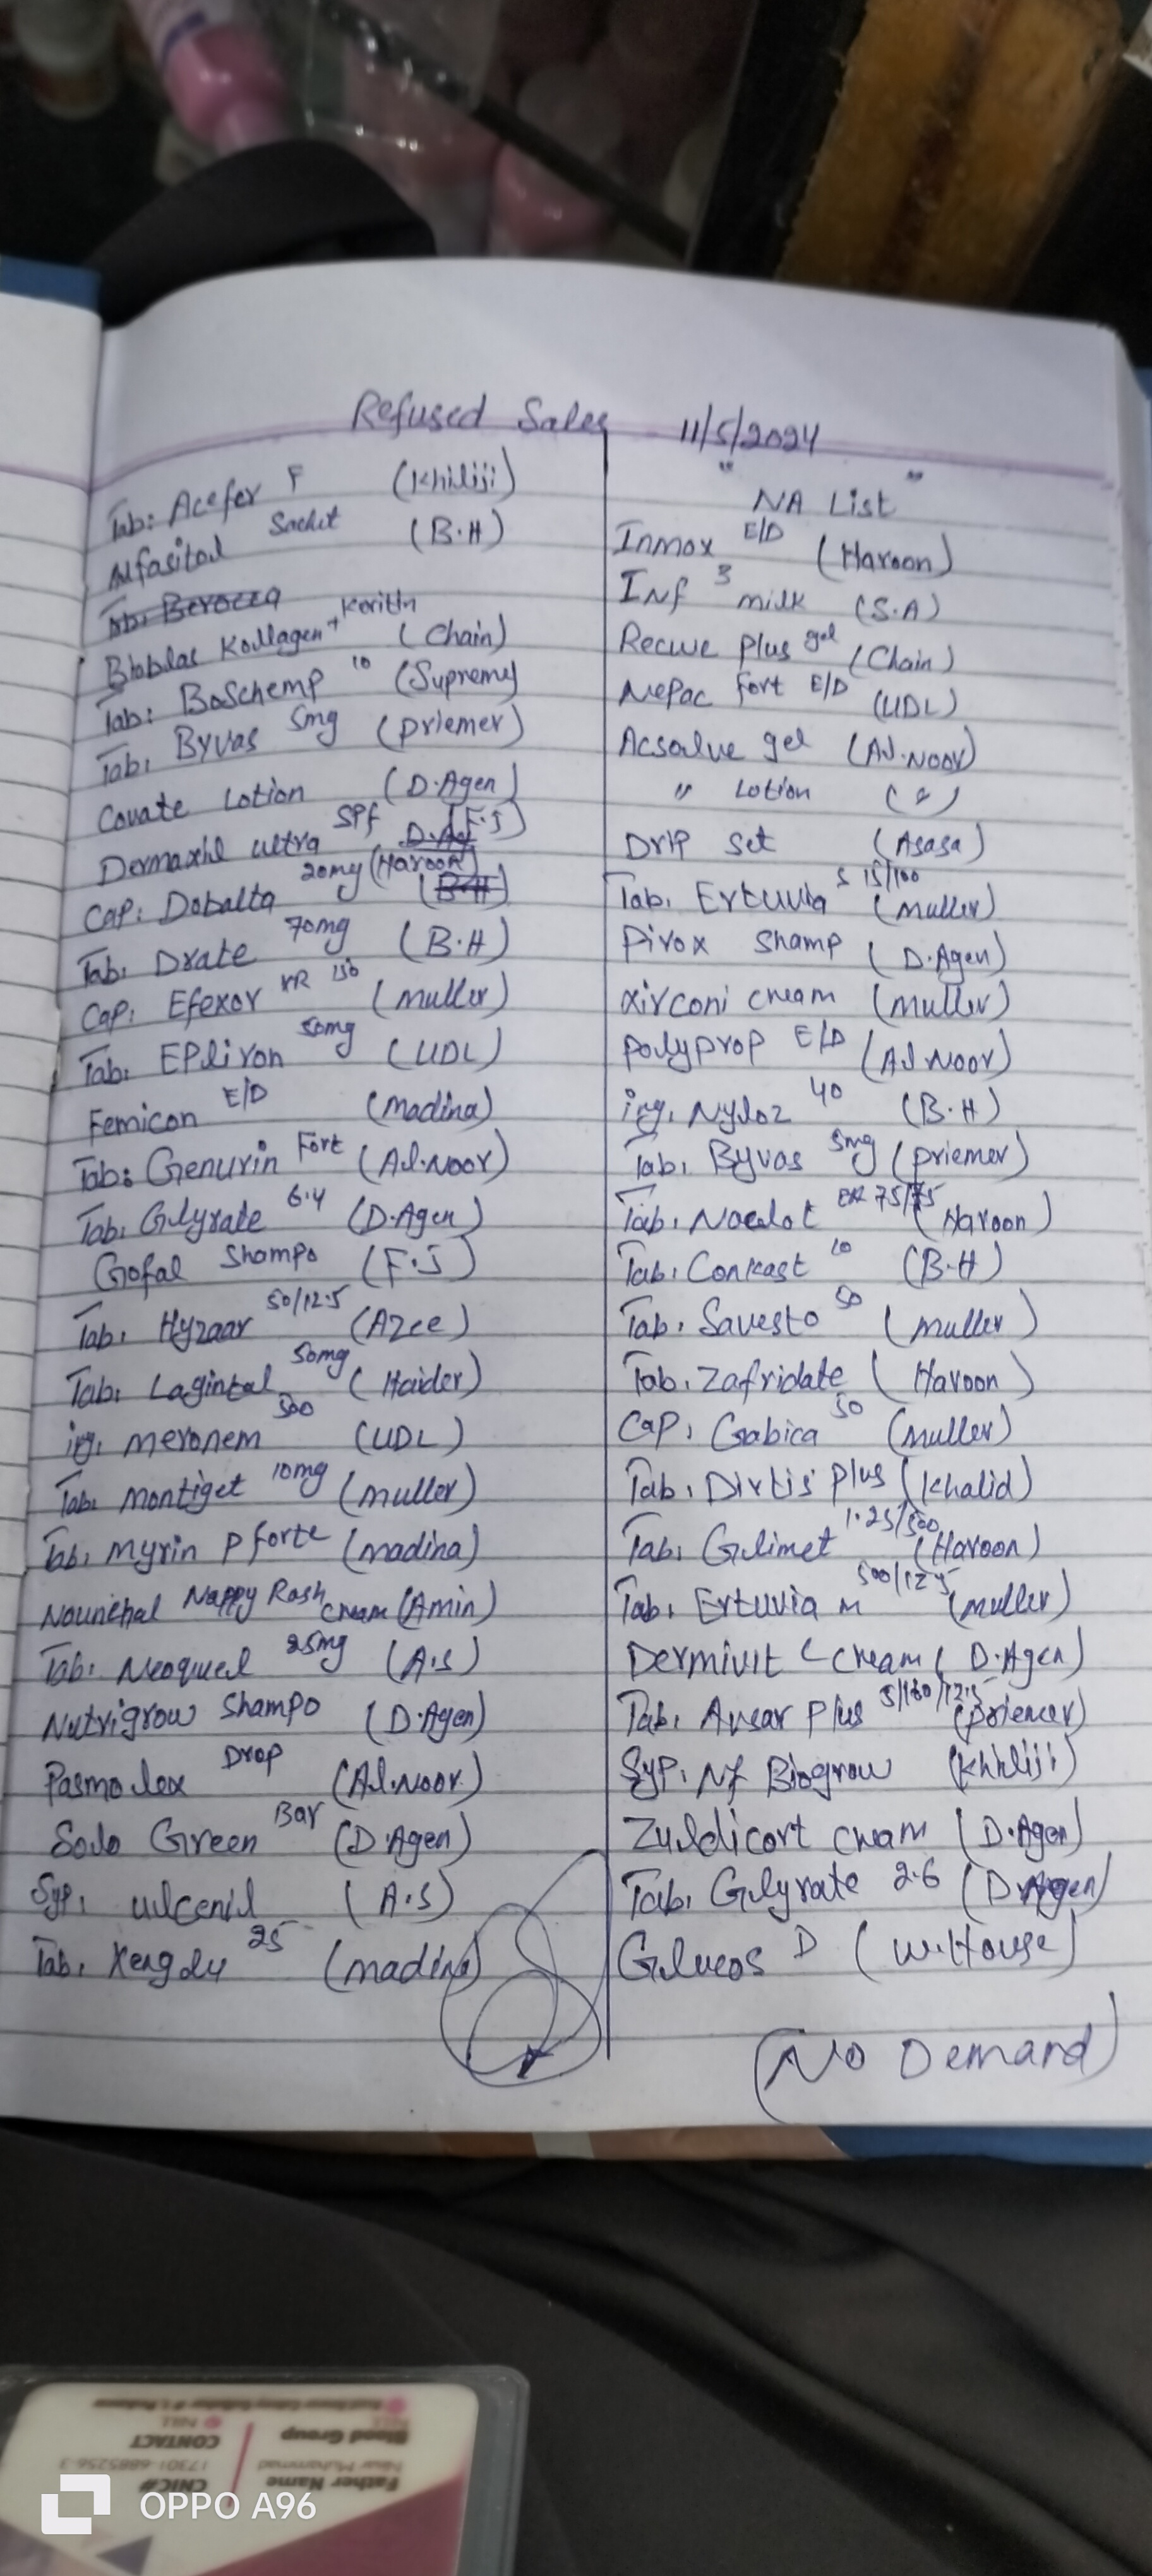 Refused Sales 11/5/2024
Tab: Acefer F (Khiliji)
Alfasitol Sachit (B.H)
Tab: Berocca
Biobilas Kollagen + Keritin (Chain)
Tab: BoSchemp 10 (Supreme)
Tab: Byvas 5mg (Priemer)
Covate Lotion (D.Agen)
Dermaxhil ultra SPF D.Ag (F.J)
Cap: Dobalta 20mg (Haroon) (B.H)
Tab: Drate 70mg (B.H)
Cap: Efexor XR 150 (Muller)
Tab: EPliron 50mg (UDL)
Femicon E/D (Madina)
Tab: Genurin Fort (Al.Noor)
Tab: Glyrate 6.4 (D.Agen)
Gofal Shampo (F.J)
Tab: Hyzaar 50/12.5 (Azee)
Tab: Lagintal 50mg (Haider)
inj: meronem 500 (UDL)
Tab: Montiget 10mg (Muller)
Tab: Myrin P forte (Madina)
Nounihal Nappy Rash Cream (Amin)
Tab: Neoquel 25mg (A.S)
Nutrigrow Shampo (D.Agen)
Pasmolex Drop (Al.Noor)
Solo Green Bar (D.Agen)
Syp: ulcenil (A.S)
Tab: Xenglu 25 (Madina)
" NA List "
Inmox E/D (Haroon)
Inf 3 milk (S.A)
Recuve plus gel (Chain)
Nepac Fort E/D (UDL)
Acsolve gel (Al.Noor)
" Lotion (")
Drip Set (Asasa)
Tab: Ertuvia S 15/100 (Muller)
Pirox Shamp (D.Agen)
Xirconi cream (Muller)
Polyprop E/D (Al.Noor)
inj: Nyloz 40 (B.H)
Tab: Byvas 5mg (Priemer)
Tab: Noclot EX 75/75 (Haroon)
Tab: Conkast 10 (B.H)
Tab: Savesto 50 (Muller)
Tab: Zafridate (Haroon)
Cap: Gabica 50 (Muller)
Tab: Dirtis Plus (Khalid)
Tab: Glimet 1.25/500 (Haroon)
Tab: Ertuvia M 500/12.5 (Muller)
Dermivit C Cream (D.Agen)
Tab: Avsar Plus 5/160/12.5 (Priemer)
Syp: Nf Biogrow (Khiliji)
Zuldicort Cream (D.Agen)
Tab: Glyrate 2.6 (D.Agen)
Glucos D (W.House)
(No Demand)
Blood Group
CONTACT
Father Name
CNIC#
OPPO A96